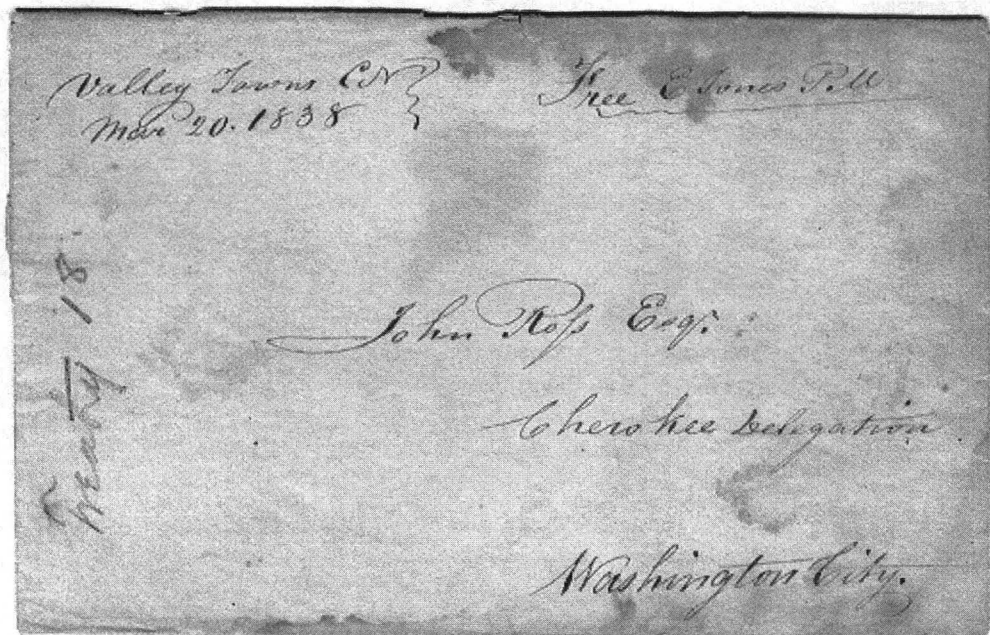 Valley Towns CN
Mar 20. 1838
Free E Jones P.M
John Ross Esqr.
Cherokee Delegation
Washington City.
Treaty 18